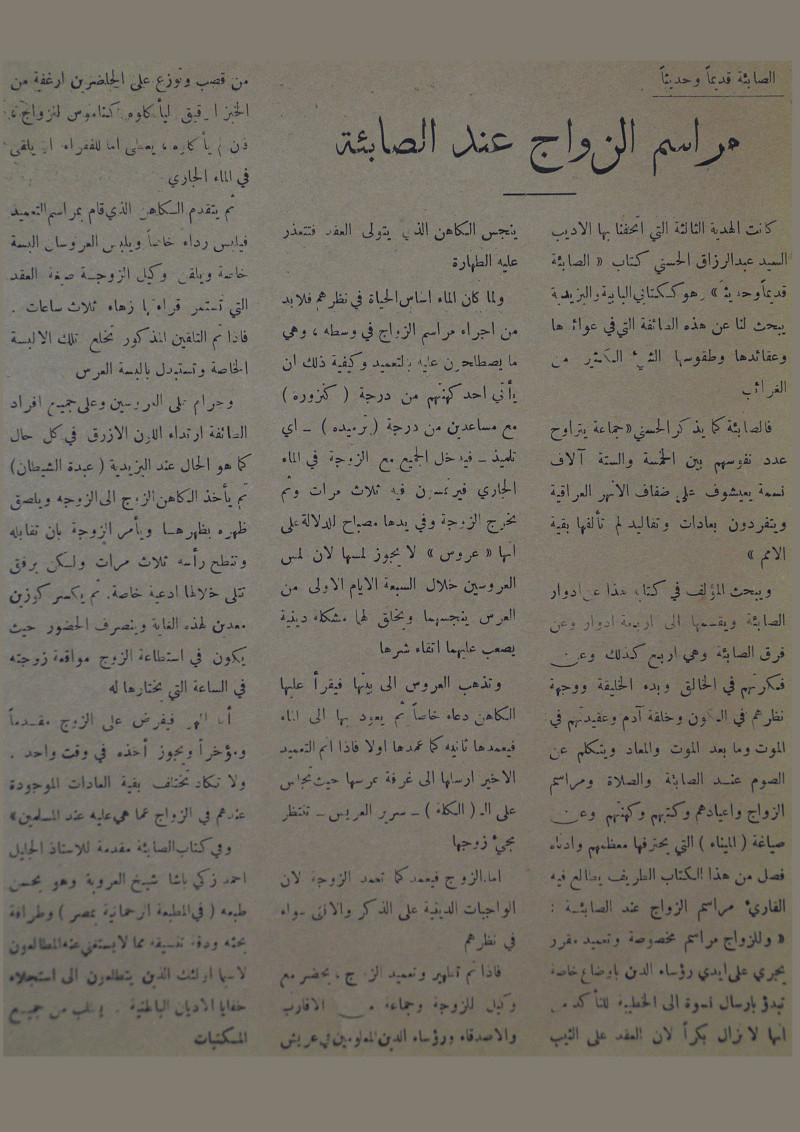 الصابئة قديماً وحديثاً
مراسم الزواج عند الصابئة
كانت الهدية الثالثة التي اتحفنا بها الاديب
السيد عبدالرزاق الحسني كتاب « الصابئة
قديماً وحديثاً » وهو ككتابي البابية واليزيدية
يبحث لنا عن هذه الطائفة التي في عوائدها
وعقائدها وطقوسها الشيء الكثير من
الغرائب
فالصابئة كما يذكر الحسني « جماعة يتراوح
عدد نفوسهم بين الخمسة والستة آلاف
نسمة يعيشون على ضفاف الأنهر العراقية
ويتفردون بعادات وتقاليد لم تألفها بقية
الامم »
ويبحث المؤلف في كتابه هذا عن ادوار
الصابئة ويقسمها الى اربعة ادوار وعن
فرق الصابئة وهي اربع كذلك وعن
فكرتهم في الخالق وبدء الخليقة ووجهة
نظرهم في الكون وخلقة آدم وعقيدتهم في
الموت وما بعد الموت والمعاد ويتكلم عن
الصوم عند الصابئة والصلاة ومراسم
الزواج واعيادهم وكتبهم وكهنتهم وعن
صياغة ( الميناء ) التي يحترفها معظمهم وادناه
فصل من هذا الكتاب الطريف يطالع فيه
القاريء مراسم الزواج عند الصابئة :
« وللزواج مراسم مخصوصة وتعميد مقرر
يجري على ايدي رؤساء الدين باوضاع خاصة
تبدؤ بارسال نسوة الى الخطيبة للتأكد من
انها لا تزال بكراً لان العقد على الثيب
ينجس الكاهن الذي يتولى العقد فتتعذر
عليه الطهارة
ولما كان الماء اساس الحياة في نظرهم فلابد
من اجراء مراسم الزواج في وسطه ، وهي
ما يصطلحون عليه بالتعميد وكيفية ذلك ان
يأتي احد كهنتهم من درجة ( كنزوره )
مع مساعدين من درجة ( ترميده ) ـ اي
تلميذ ـ فيدخل الجميع مع الزوجة في الماء
الجاري فيرتمسون فيه ثلاث مرات وتم
يخرج الزوجة وفي يدها مصباح للدلالة على
انها « عروس » لا يجوز لمسها لان لمس
العروسين خلال السبعة الايام الاولى من
العرس ينجسهما ويخلق لهما مشكلة دينية
يصعب عليهما اتقاء شرها
وتذهب العروس الى بيتها فيقرأ عليها
الكاهن دعاء خاصاً ثم يعود بها الى الماء
فيعمدها ثانيه كما عمدها اولا فاذا اتم التعميد
الاخير ارسلها الى غرفة عرسها حيث تجلس
على الـ ( الكلة ) ـ سرير العريس ـ تنتظر
مجيء زوجها
اما الزوج فيعمد كما تعمد الزوجة لان
الواجبات الدينية على الذكر والانثى سواء
في نظرهم
فاذا تم تطهير وتعميد الزوج ، يحضر مع
وكيل للزوجة وجماعة من الاقارب
والاصدقاء ورؤساء الدين المعلومين في عريش
من قصب وتوزع على الحاضرين ارغفة من
الخبز الرقيق ليأكلوه كناموس للزواج ،
فان لم يأكلوه ، يعطى اما للفقراء او يلقى
في الماء الجاري
ثم يتقدم الكاهن الذي قام بمراسم التعميد
فيلبس رداء خاصاً ويلبس العروسان البسة
خاصة ويلقن وكيل الزوجة صيغة العقد
التي تستمر قراءتها زهاء ثلاث ساعات .
فاذا تم التلقين المذكور تخلع تلك الالبسة
الخاصة وتستبدل بالبسة العرس
وحرام على العروسين وعلى جميع افراد
الطائفة ارتداء اللون الازرق في كل حال
كما هو الحال عند اليزيدية ( عبدة الشيطان )
ثم يأخذ الكاهن الزوج الى الزوجه ويلصق
ظهره بظهرها ويأمر الزوجة بان تقابله
وتنطح رأسه ثلاث مرات ولكن برفق
تتلى خلالها ادعية خاصة. ثم يكسر كوزين
معدين لهذه الغاية وينصرف الحضور حيث
يكون في استطاعة الزوج مواقعة زوجته
في الساعة التي يختارها له
أما المهر فيفرض على الزوج مقدماً
ومؤخراً ويجوز أخذه في وقت واحد .
ولا تكاد تختلف بقية العادات الموجودة
عندهم في الزواج عما هي عليه عند المسلمين »
وفي كتاب الصابئة مقدمة للاستاذ الجليل
احمد زكي باشا شيخ العروبة وهو بحسن
طبعه ( في المطبعة الرحمانية بمصر ) وطرافة
بحثه ودقة تنسيقه مما لا يستغني عنه المطالعون
لاسيما اولئك الذين يتطلعون الى استجلاء
خفايا الاديان الباطنية . يطلب من جميع
المكتبات